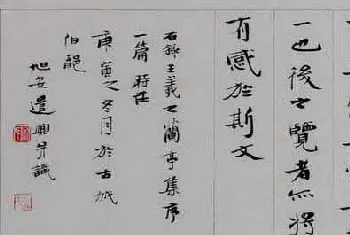 一也後之覽者亦將
有感於斯文
右錄王羲之蘭亭集序
一篇時在
庚寅之冬月於古城
遣興并識